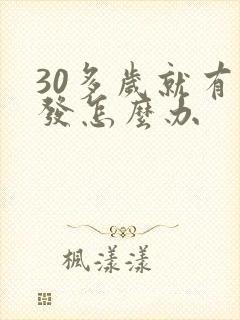 30多歲就有
發怎麼办
楓漾漾